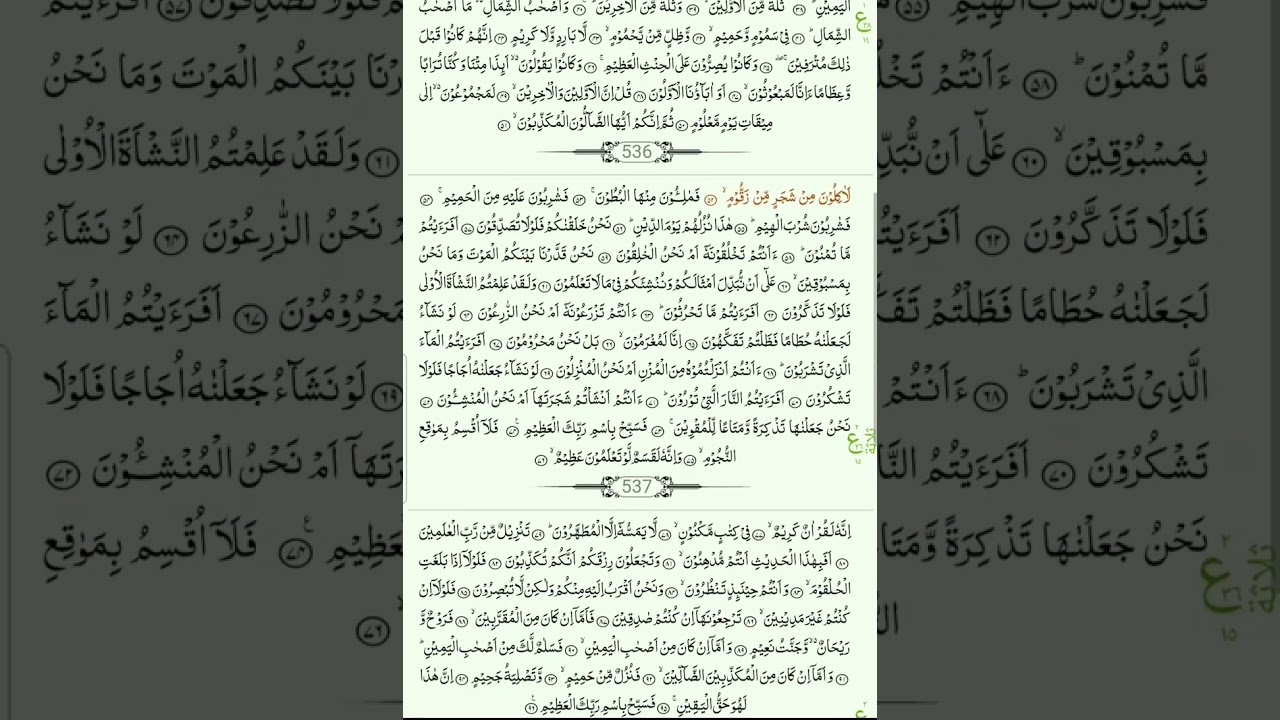 الۡيَمِيۡنِ ؕ‏ ﴿۳۸﴾ ثُلَّةٌ مِّنَ الۡاَوَّلِيۡنَۙ‏ ﴿۳۹﴾ وَثُلَّةٌ مِّنَ الۡاٰخِرِيۡنَؕ‏ ﴿۴۰﴾ وَاَصۡحٰبُ الشِّمَالِ ۙ مَاۤ اَصۡحٰبُ
الشِّمَالِؕ‏ ﴿۴۱﴾ فِىۡ سَمُوۡمٍ وَّحَمِيۡمٍۙ‏ ﴿۴۲﴾ وَّظِلٍّ مِّنۡ يَّحۡمُوۡمٍۙ‏ ﴿۴۳﴾ لَّا بَارِدٍ وَّلَا كَرِيۡمٍ‏ ﴿۴۴﴾ اِنَّهُمۡ كَانُوۡا قَبۡلَ
ذٰلِكَ مُتۡرَفِيۡنَۚ  ۖ‏ ﴿۴۵﴾ وَكَانُوۡا يُصِرُّوۡنَ عَلَى الۡحِنۡثِ الۡعَظِيۡمِۚ‏ ﴿۴۶﴾ وَكَانُوۡا يَقُوۡلُوۡنَ ۙ اَٮِٕذَا مِتۡنَا وَكُنَّا تُرَابًا
وَّعِظَامًا ءَاِنَّا لَمَبۡعُوۡثُوۡنَۙ‏ ﴿۴۷﴾ اَوَ اٰبَآؤُنَا الۡاَوَّلُوۡنَ‏ ﴿۴۸﴾ قُلۡ اِنَّ الۡاَوَّلِيۡنَ وَالۡاٰخِرِيۡنَۙ‏ ﴿۴۹﴾ لَمَجۡمُوۡعُوۡنَ ۙ اِلٰى
مِيۡقَاتِ يَوۡمٍ مَّعۡلُوۡمٍ‏ ﴿۵۰﴾ ثُمَّ اِنَّكُمۡ اَيُّهَا الضَّآلُّوۡنَ الۡمُكَذِّبُوۡنَۙ‏ ﴿۵۱﴾
536
لَاٰكِلُوۡنَ مِنۡ شَجَرٍ مِّنۡ زَقُّوۡمٍۙ‏ ﴿۵۲﴾ فَمٰلِـُٔـوۡنَ مِنۡهَا الۡبُطُوۡنَۚ‏ ﴿۵۳﴾ فَشٰرِبُوۡنَ عَلَيۡهِ مِنَ الۡحَمِيۡمِۚ‏ ﴿۵۴﴾
فَشٰرِبُوۡنَ شُرۡبَ الۡهِيۡمِؕ‏ ﴿۵۵﴾ هٰذَا نُزُلُهُمۡ يَوۡمَ الدِّيۡنِؕ‏ ﴿۵۶﴾ نَحۡنُ خَلَقۡنٰكُمۡ فَلَوۡلَا تُصَدِّقُوۡنَ‏ ﴿۵۷﴾ اَفَرَءَيۡتُمۡ
مَّا تُمۡنُوۡنَؕ‏ ﴿۵۸﴾ ءَاَنۡتُمۡ تَخۡلُقُوۡنَهٗۤ اَمۡ نَحۡنُ الۡخٰلِقُوۡنَ‏ ﴿۵۹﴾ نَحۡنُ قَدَّرۡنَا بَيۡنَكُمُ الۡمَوۡتَ وَمَا نَحۡنُ
بِمَسۡبُوۡقِيۡنَۙ‏ ﴿۶۰﴾ عَلٰٓى اَنۡ نُّبَدِّلَ اَمۡثَالَـكُمۡ وَنُنۡشِئَكُمۡ فِىۡ مَا لَا تَعۡلَمُوۡنَ‏ ﴿۶۱﴾ وَلَـقَدۡ عَلِمۡتُمُ النَّشۡاَةَ الۡاُوۡلٰى
فَلَوۡلَا تَذَكَّرُوۡنَ‏ ﴿۶۲﴾ اَفَرَءَيۡتُمۡ مَّا تَحۡرُثُوۡنَؕ‏ ﴿۶۳﴾ ءَاَنۡتُمۡ تَزۡرَعُوۡنَهٗۤ اَمۡ نَحۡنُ الزّٰرِعُوۡنَ‏ ﴿۶۴﴾ لَوۡ نَشَآءُ
لَجَعَلۡنٰهُ حُطَامًا فَظَلۡتُمۡ تَفَكَّهُوۡنَ‏ ﴿۶۵﴾ اِنَّا لَمُغۡرَمُوۡنَۙ‏ ﴿۶۶﴾ بَلۡ نَحۡنُ مَحۡرُوۡمُوۡنَ‏ ﴿۶۷﴾ اَفَرَءَيۡتُمُ الۡمَآءَ
الَّذِىۡ تَشۡرَبُوۡنَؕ‏ ﴿۶۸﴾ ءَاَنۡتُمۡ اَنۡزَلۡـتُمُوۡهُ مِنَ الۡمُزۡنِ اَمۡ نَحۡنُ الۡمُنۡزِلُوۡنَ‏ ﴿۶۹﴾ لَوۡ نَشَآءُ جَعَلۡنٰهُ اُجَاجًا فَلَوۡلَا
تَشۡكُرُوۡنَ‏ ﴿۷۰﴾ اَفَرَءَيۡتُمُ النَّارَ الَّتِىۡ تُوۡرُوۡنَؕ‏ ﴿۷۱﴾ ءَاَنۡتُمۡ اَنۡشَاۡتُمۡ شَجَرَتَهَاۤ اَمۡ نَحۡنُ الۡمُنۡشِـُٔـوۡنَ‏ ﴿۷۲﴾
نَحۡنُ جَعَلۡنٰهَا تَذۡكِرَةً وَّمَتَاعًا لِّلۡمُقۡوِيۡنَۚ‏ ﴿۷۳﴾ فَسَبِّحۡ بِاسۡمِ رَبِّكَ الۡعَظِيۡمِ‏ ﴿۷۴﴾ فَلَاۤ اُقۡسِمُ بِمَوٰقِعِ
النُّجُوۡمِۙ‏ ﴿۷۵﴾ وَاِنَّهٗ لَقَسَمٌ لَّوۡ تَعۡلَمُوۡنَ عَظِيۡمٌۙ‏ ﴿۷۶﴾
537
اِنَّهٗ لَـقُرۡاٰنٌ كَرِيۡمٌۙ‏ ﴿۷۷﴾ فِىۡ كِتٰبٍ مَّكۡنُوۡنٍۙ‏ ﴿۷۸﴾ لَّا يَمَسُّهٗۤ اِلَّا الۡمُطَهَّرُوۡنَؕ‏ ﴿۷۹﴾ تَنۡزِيۡلٌ مِّنۡ رَّبِّ الۡعٰلَمِيۡنَ
﴿۸۰﴾ اَفَبِهٰذَا الۡحَدِيۡثِ اَنۡتُمۡ مُّدۡهِنُوۡنَۙ‏ ﴿۸۱﴾ وَتَجۡعَلُوۡنَ رِزۡقَكُمۡ اَنَّكُمۡ تُكَذِّبُوۡنَ‏ ﴿۸۲﴾ فَلَوۡلَاۤ اِذَا بَلَغَتِ
الۡحُلۡقُوۡمَۙ‏ ﴿۸۳﴾ وَاَنۡتُمۡ حِيۡنَٮِٕذٍ تَنۡظُرُوۡنَۙ‏ ﴿۸۴﴾ وَنَحۡنُ اَقۡرَبُ اِلَيۡهِ مِنۡكُمۡ وَلٰـكِنۡ لَّا تُبۡصِرُوۡنَ‏ ﴿۸۵﴾ فَلَوۡلَاۤ اِنۡ
كُنۡتُمۡ غَيۡرَ مَدِيۡنِيۡنَۙ‏ ﴿۸۶﴾ تَرۡجِعُوۡنَهَاۤ اِنۡ كُنۡتُمۡ صٰدِقِيۡنَ‏ ﴿۸۷﴾ فَاَمَّاۤ اِنۡ كَانَ مِنَ الۡمُقَرَّبِيۡنَۙ‏ ﴿۸۸﴾ فَرَوۡحٌ وَّ
رَيۡحَانٌ  ۙ وَّجَنَّتُ نَعِيۡمٍ‏ ﴿۸۹﴾ وَاَمَّاۤ اِنۡ كَانَ مِنۡ اَصۡحٰبِ الۡيَمِيۡنِۙ‏ ﴿۹۰﴾ فَسَلٰمٌ لَّكَ مِنۡ اَصۡحٰبِ الۡيَمِيۡنِؕ
﴿۹۱﴾ وَاَمَّاۤ اِنۡ كَانَ مِنَ الۡمُكَذِّبِيۡنَ الضَّآلِّيۡنَۙ‏ ﴿۹۲﴾ فَنُزُلٌ مِّنۡ حَمِيۡمٍۙ‏ ﴿۹۳﴾ وَّتَصۡلِيَةُ جَحِيۡمٍ‏ ﴿۹۴﴾ اِنَّ هٰذَا
لَهُوَ حَقُّ الۡيَقِيۡنِۚ‏ ﴿۹۵﴾ فَسَبِّحۡ بِاسۡمِ رَبِّكَ الۡعَظِيۡمِ‏ ﴿۹۶﴾